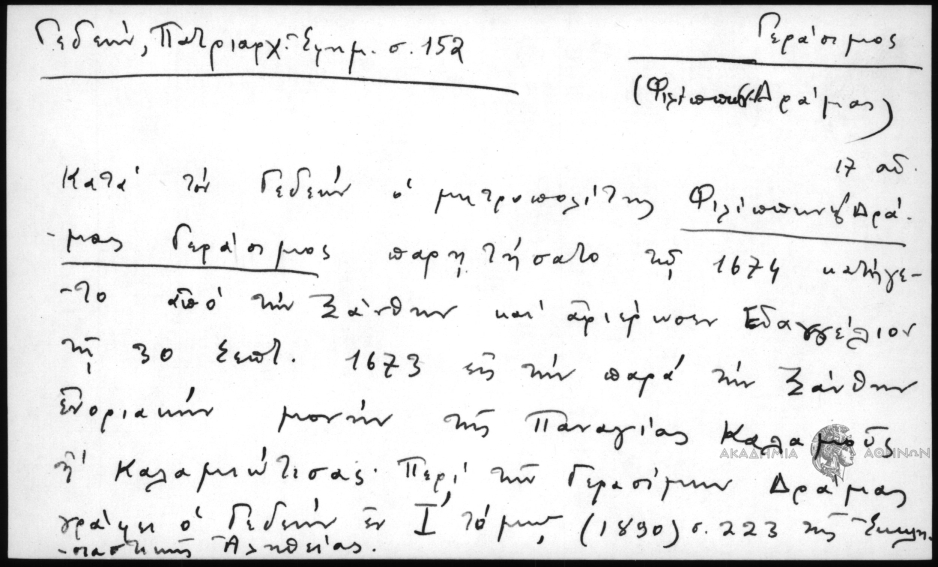 Γεδεών, Πατριαρχ. Εφημ. σ. 152
Γεράσιμος
(Φιλίππων Δράμας)
17 αἰ.
Κατά τόν Γεδεών ὁ μητροπολίτης Φιλίππων Δρά-
-μας Γεράσιμος παρῃτήσατο τῷ 1674 κατήγε-
-το ἀπό τήν Ξάνθην καί ἀφιέρωσεν Εὐαγγέλιον
τῇ 30 Σεπτ. 1673 εἰς τήν παρά τήν Ξάνθην
ἐνοριακήν μονήν τῆς Παναγίας Καλαμοῦς
ἤ Καλαμιώτισσας. Περί τοῦ Γερασίμου Δράμας
γράφει ὁ Γεδεών ἐν Ι' τόμῳ (1890) σ. 223 τῆς Ἐκκλη.
-σιαστικῆς Ἀληθείας.
ΑΚΑΔΗΜΙΑ ΑΘΗΝΩΝ